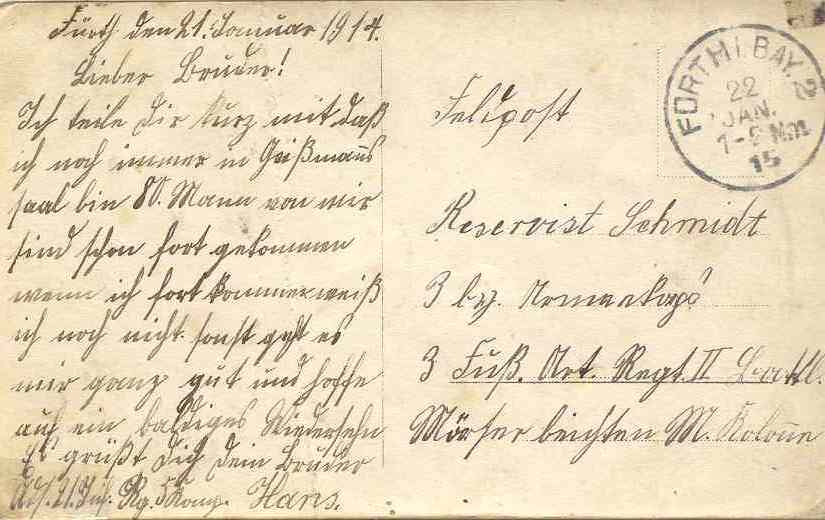 Fürth den 21. Januar 1914.
Lieber Bruder!
Ich teile dir kurz mit daß
ich noch immer in Geißmanns
saal bin 80. Mann von wir
sind schon fort gekommen
wenn ich fort komme weiß
ich noch nicht. sonst geht es
mir ganz gut und hoffe
auf ein baldiges Wiedersehn
Es grüßt Dich dein Bruder
21. Inf. Rg. Komp. Hans.
FÜRTH I. BAY. 2
22
JAN.
15
Feldpost
Reservist Schmidt
3 by.
3 Fuß. Art. Regt. II Battl.
Mörser leichten M. Kolonne